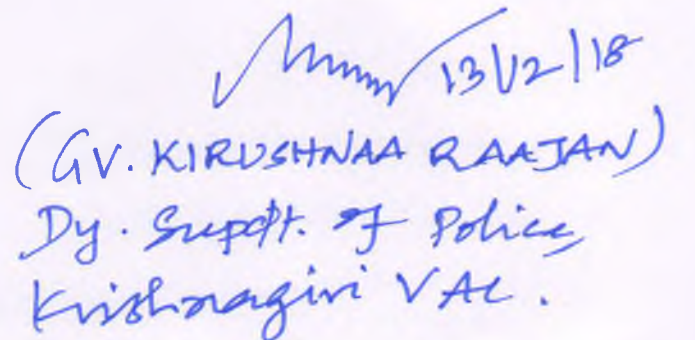 13/12/18
(GV. KIRUSHNAA RAAJAN)
Dy. Supdt. of Police,
Krishnagiri VAC.